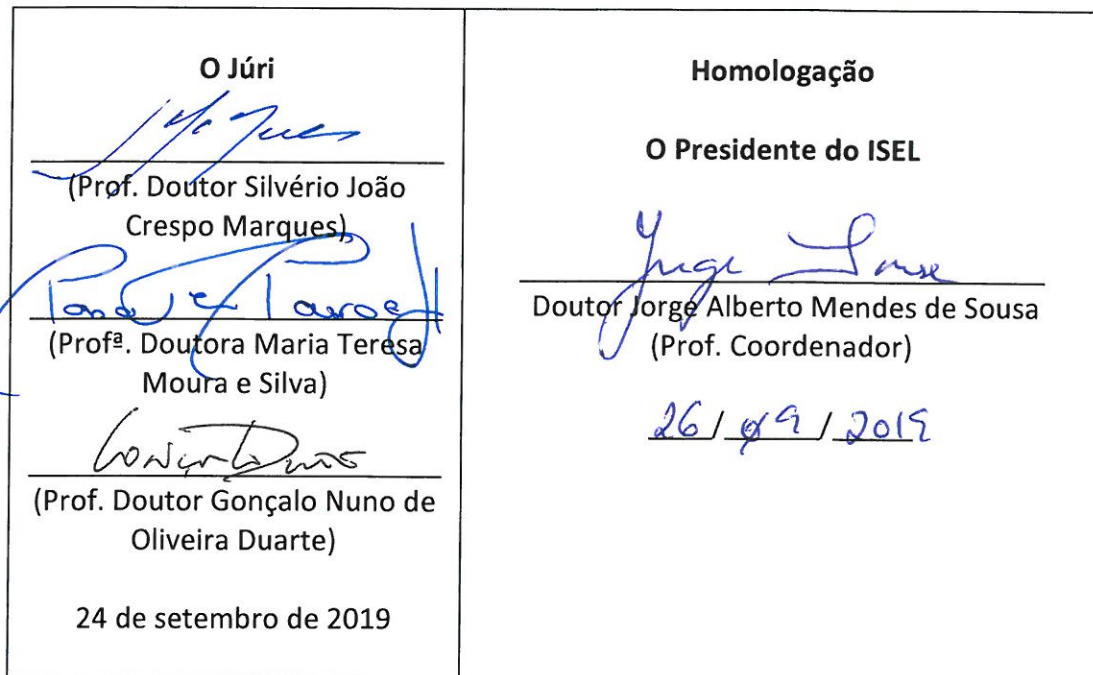 O Júri
(Prof. Doutor Silvério João
Crespo Marques)
(Profª. Doutora Maria Teresa
Moura e Silva)
(Prof. Doutor Gonçalo Nuno de
Oliveira Duarte)
24 de setembro de 2019
Homologação
O Presidente do ISEL
Jorge Sousa
Doutor Jorge Alberto Mendes de Sousa
(Prof. Coordenador)
26 / 09 / 2019